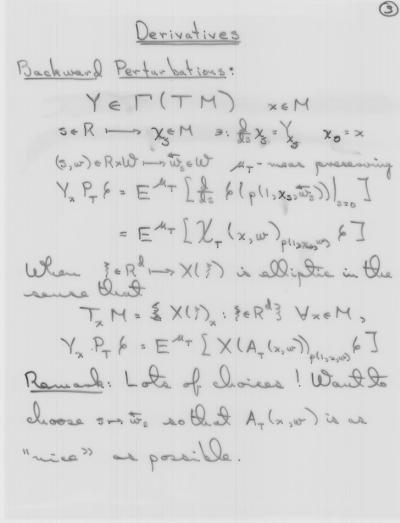 3
Derivatives
Backward Perturbations:
Y ∈ Γ(TM)    x ∈ M
s ∈ R ⟼ χ_s ∈ M  ∋: d/ds χ_s = Y_{χ_s}   χ_0 = x
(s, w) ∈ R×W ⟼ w̃_s ∈ W   μ_T - meas preserving
Y_x P_T φ = E^{μ_T} [ d/ds φ(p(1, χ_s, w̃_s)) |_{s=0} ]
= E^{μ_T} [ χ_T(x, w)_{p(1,x,w)} φ ]
When ξ ∈ R^d ⟼ X(ξ) is elliptic in the
sense that
T_x M = { X(ξ)_x : ξ ∈ R^d } ∀ x ∈ M,
Y_x P_T φ = E^{μ_T} [ X(A_T(x,w))_{p(1,x,w)} φ ]
Remark: Lots of choices! Want to
choose s ⟼ w̃_s so that A_T(x,w) is as
"nice" as possible.